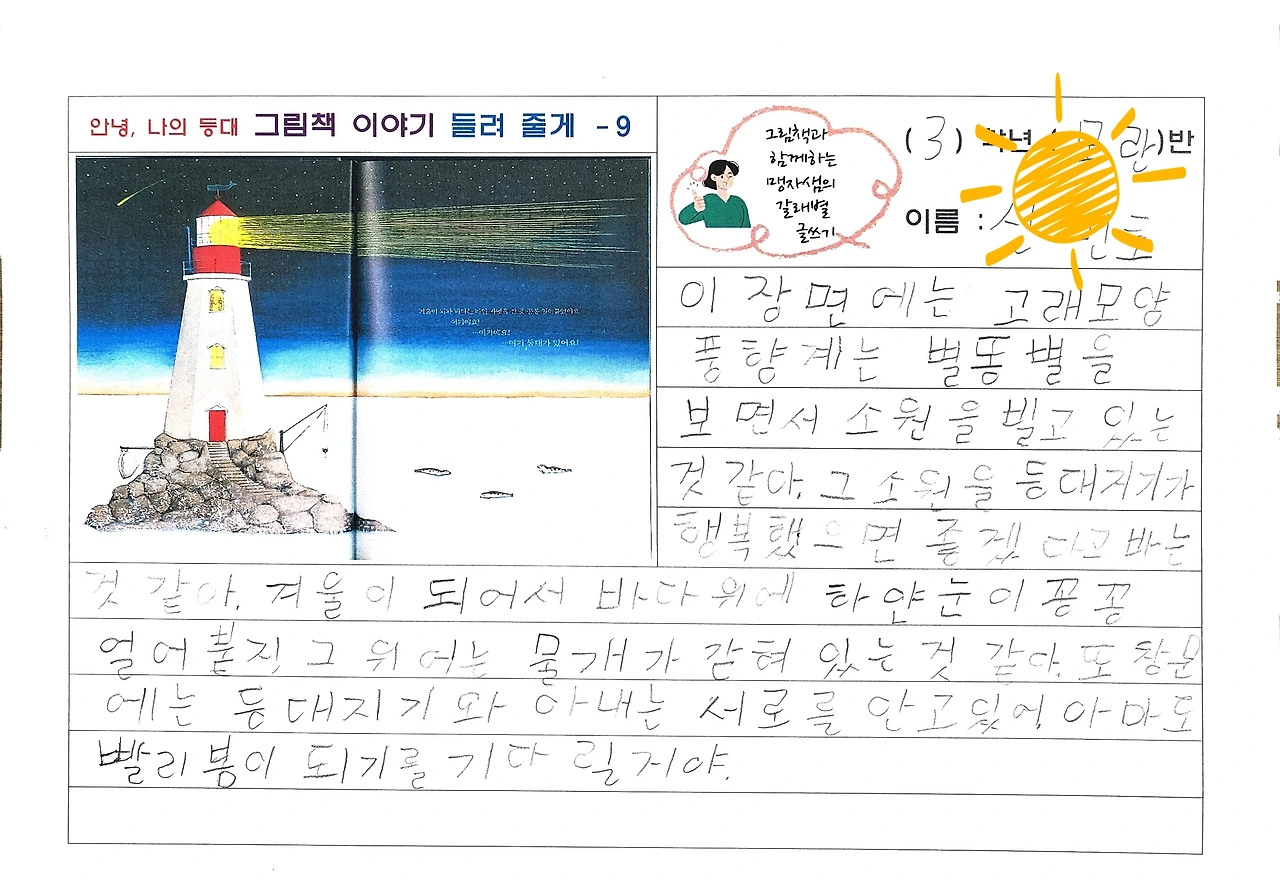 안녕, 나의 등대 그림책 이야기 들려 줄게 - 9
그림책과
함께하는
맹자샘의
갈래별
글쓰기
( 3 ) 학년 ( 란)반
이름 :
여기예요!
…여기예요!
…여기 등대가 있어요!
이 장면에는 고래모양
풍향계는 별똥별을
보면서 소원을 빌고 있는
것 같아. 그 소원을 등대지기가
행복했으면 좋겠다고 바는
것 같아. 겨울이 되어서 바다위에 하얀눈이 꽁꽁
얼어붙짓 그 위어는 물개가 갇혀 있는 것 같아. 또 창문
에는 등대지기와 아내는 서로를 안고있어. 아마도
빨리 봉이 되기를 기다릴거야.